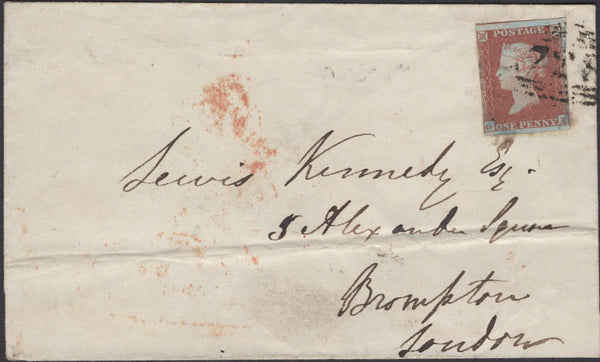 POSTAGE
ONE PENNY
Lewis Kennedy Esq.
5 Alexander Square
Brompton
London